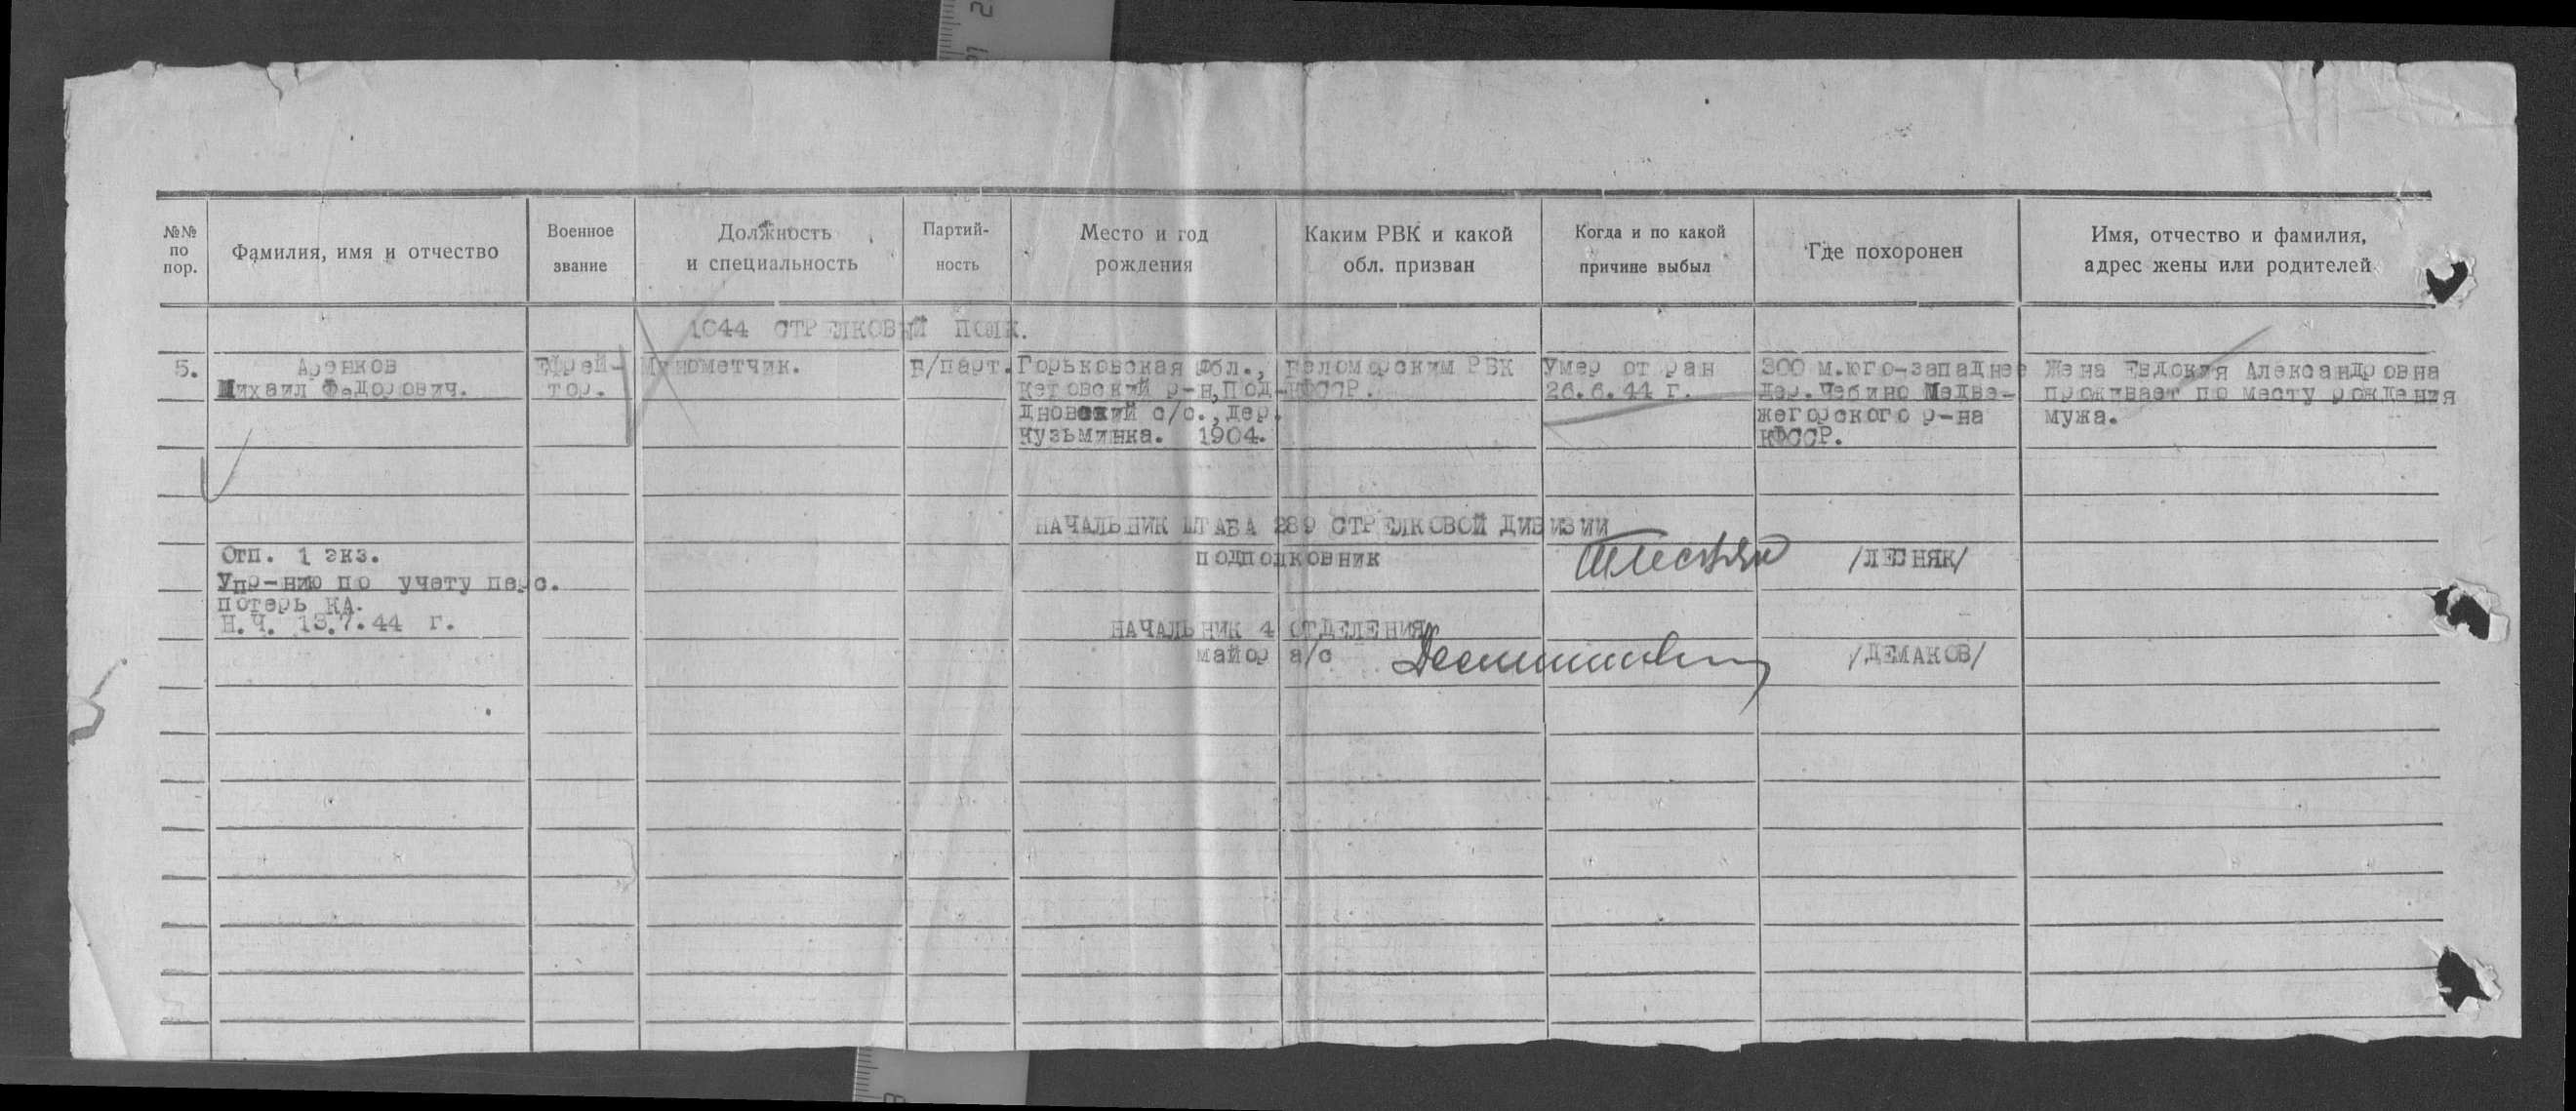 №№ по пор.
Фамилия, имя и отчество
Военное звание
Должность и специальность
Партий-ность
Место и год рождения
Каким РВК и какой обл. призван
Когда и по какой причине выбыл
Где похоронен
Имя, отчество и фамилия, адрес жены или родителей
1044 СТРЕЛКОВЫЙ ПОЛК.
5.
Аренков
Михаил Федорович.
Ефрей-
тор.
Минометчик.
Б/парт.
Горьковская обл.,
Кстовский р-н, Под-
дновский с/с., дер.
Кузьминка. 1904.
Беломорским РВК
КФССР.
Умер от ран
26.6.44 г.
300 м.юго-западнее
дер.Чебино Медве-
жегорского р-на
КФССР.
Жена Евдокия Александровна
проживает по месту рождения
мужа.
НАЧАЛЬНИК ШТАБА 289 СТРЕЛКОВОЙ ДИВИЗИИ
подполковник
/ЛЕСНЯК/
Отп. 1 экз.
Упр-нию по учету перс.
потерь КА.
Н.Ч. 13.7.44 г.
НАЧАЛЬНИК 4 ОТДЕЛЕНИЯ
майор а/с
/ДЕМАКОВ/